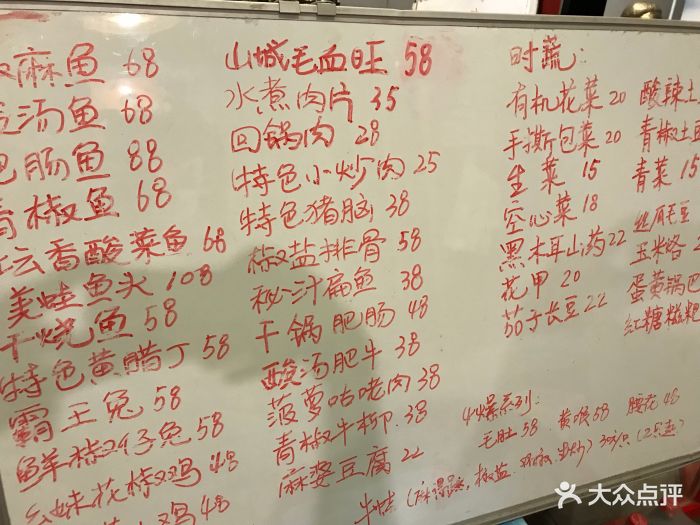 麻鱼 68
汤鱼 68
肥肠鱼 88
青椒鱼 68
云香酸菜鱼 68
美蛙鱼头 108
干烧鱼 58
特色黄腊丁 58
霸王兔 58
鲜椒仔兔 58
妹花椒鸡 48
鸡 48
山城毛血旺 58
水煮肉片 35
回锅肉 28
特色小炒肉 25
特色猪脑 38
椒盐排骨 58
秘汁扁鱼 38
干锅肥肠 48
酸汤肥牛 38
菠萝咕咾肉 38
青椒牛柳 38
麻婆豆腐 22
时蔬:
有机花菜 20 酸辣土
手撕包菜 20 青椒土豆
生菜 15 青菜 15
空心菜 18 丝瓜毛豆
黑木耳山药 22 玉米烙
花甲 20 蛋黄锅巴
茄子长豆 22 红糖糍粑
火爆系列:
毛肚 58 黄喉 58 腰花 48
牛蛙 (麻 椒盐 ) 30/只 (2只起)
大众点评